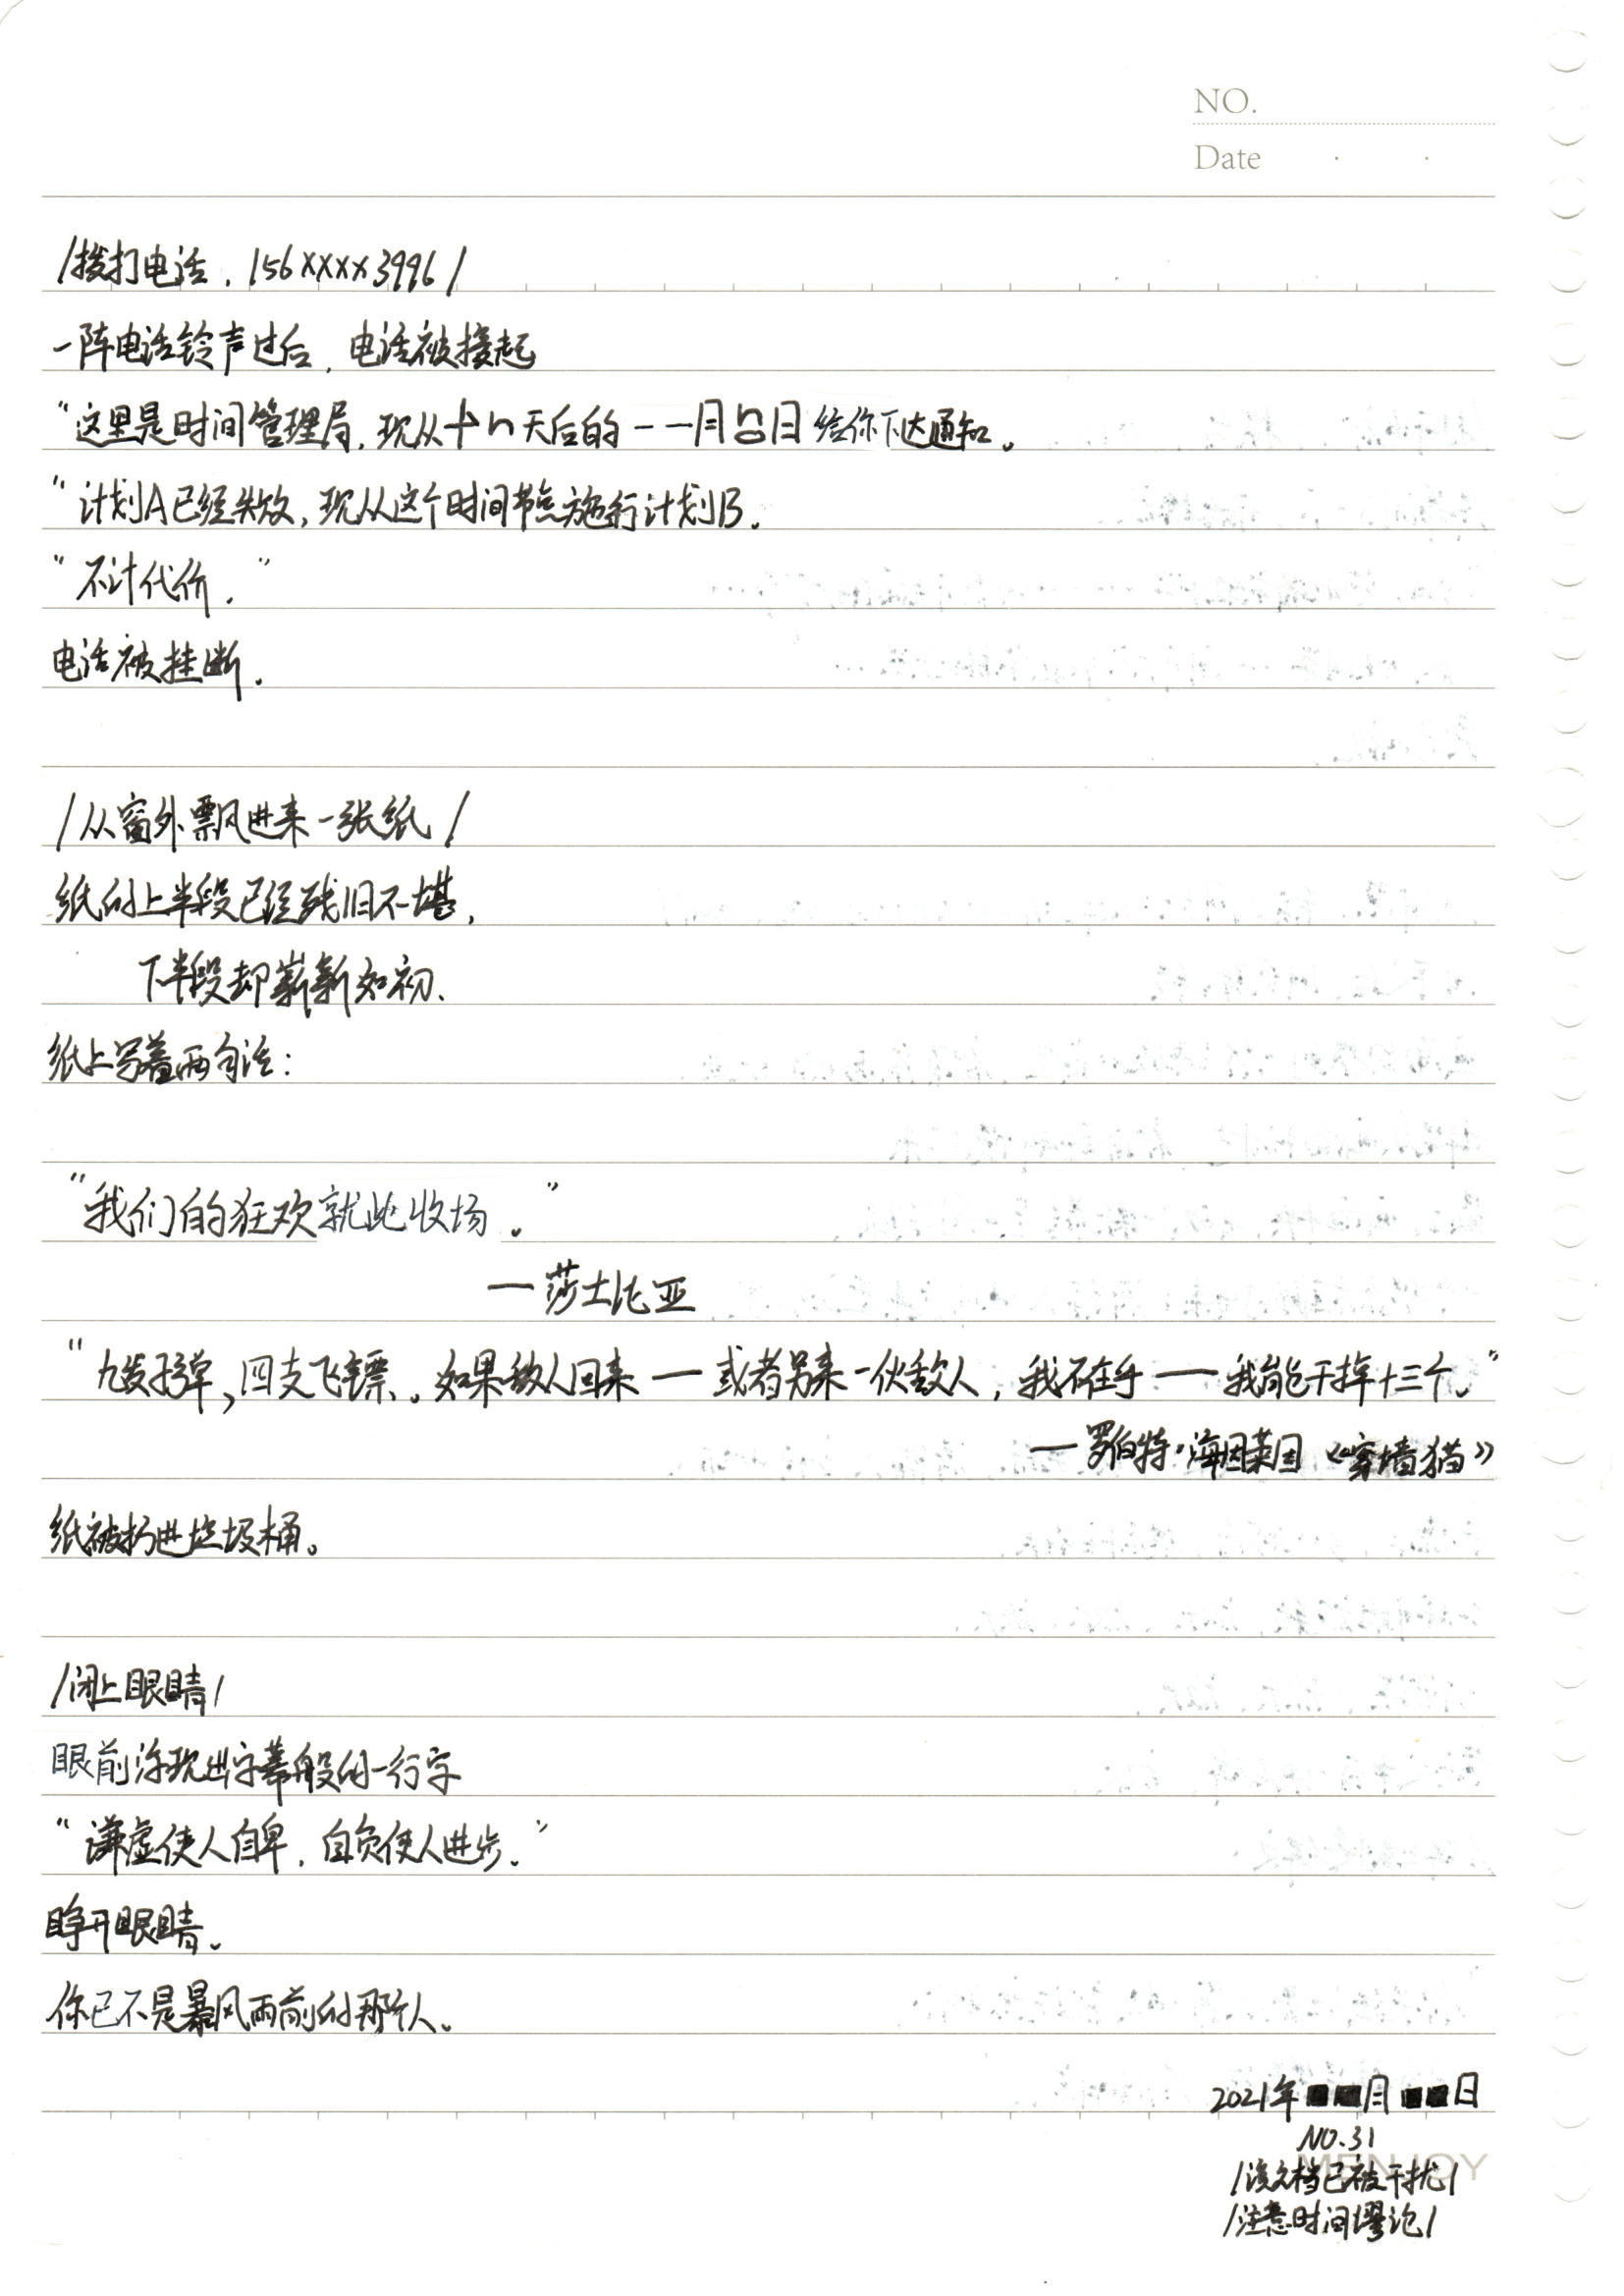 NO.
Date
/拨打电话，156xxxx3996/
一阵电话铃声过后，电话被接起
“这里是时间管理局，现从十 天后的一一月 日给你下达通知。
“计划A已经失效，现从这个时间节点施行计划B。
“不计代价。”
电话被挂断。
/从窗外飘进来一张纸/
纸的上半段已经残旧不堪，
下半段却崭新如初。
纸上写着两句话：
“我们的狂欢就此收场。”
—莎士比亚
“九发子弹，四支飞镖。如果敌人回来—或者另来一伙敌人，我不在乎—我能干掉十三个。”
—罗伯特·海因莱因《穿墙猫》
纸被扔进垃圾桶。
/闭上眼睛/
眼前浮现出字幕般的一行字
“谦虚使人自卑，自负使人进步。”
睁开眼睛。
你已不是暴风雨前的那个人。
2021年■■月■■日
NO.31
MENJOY
/该文档已被干扰/
/注意时间谬论/